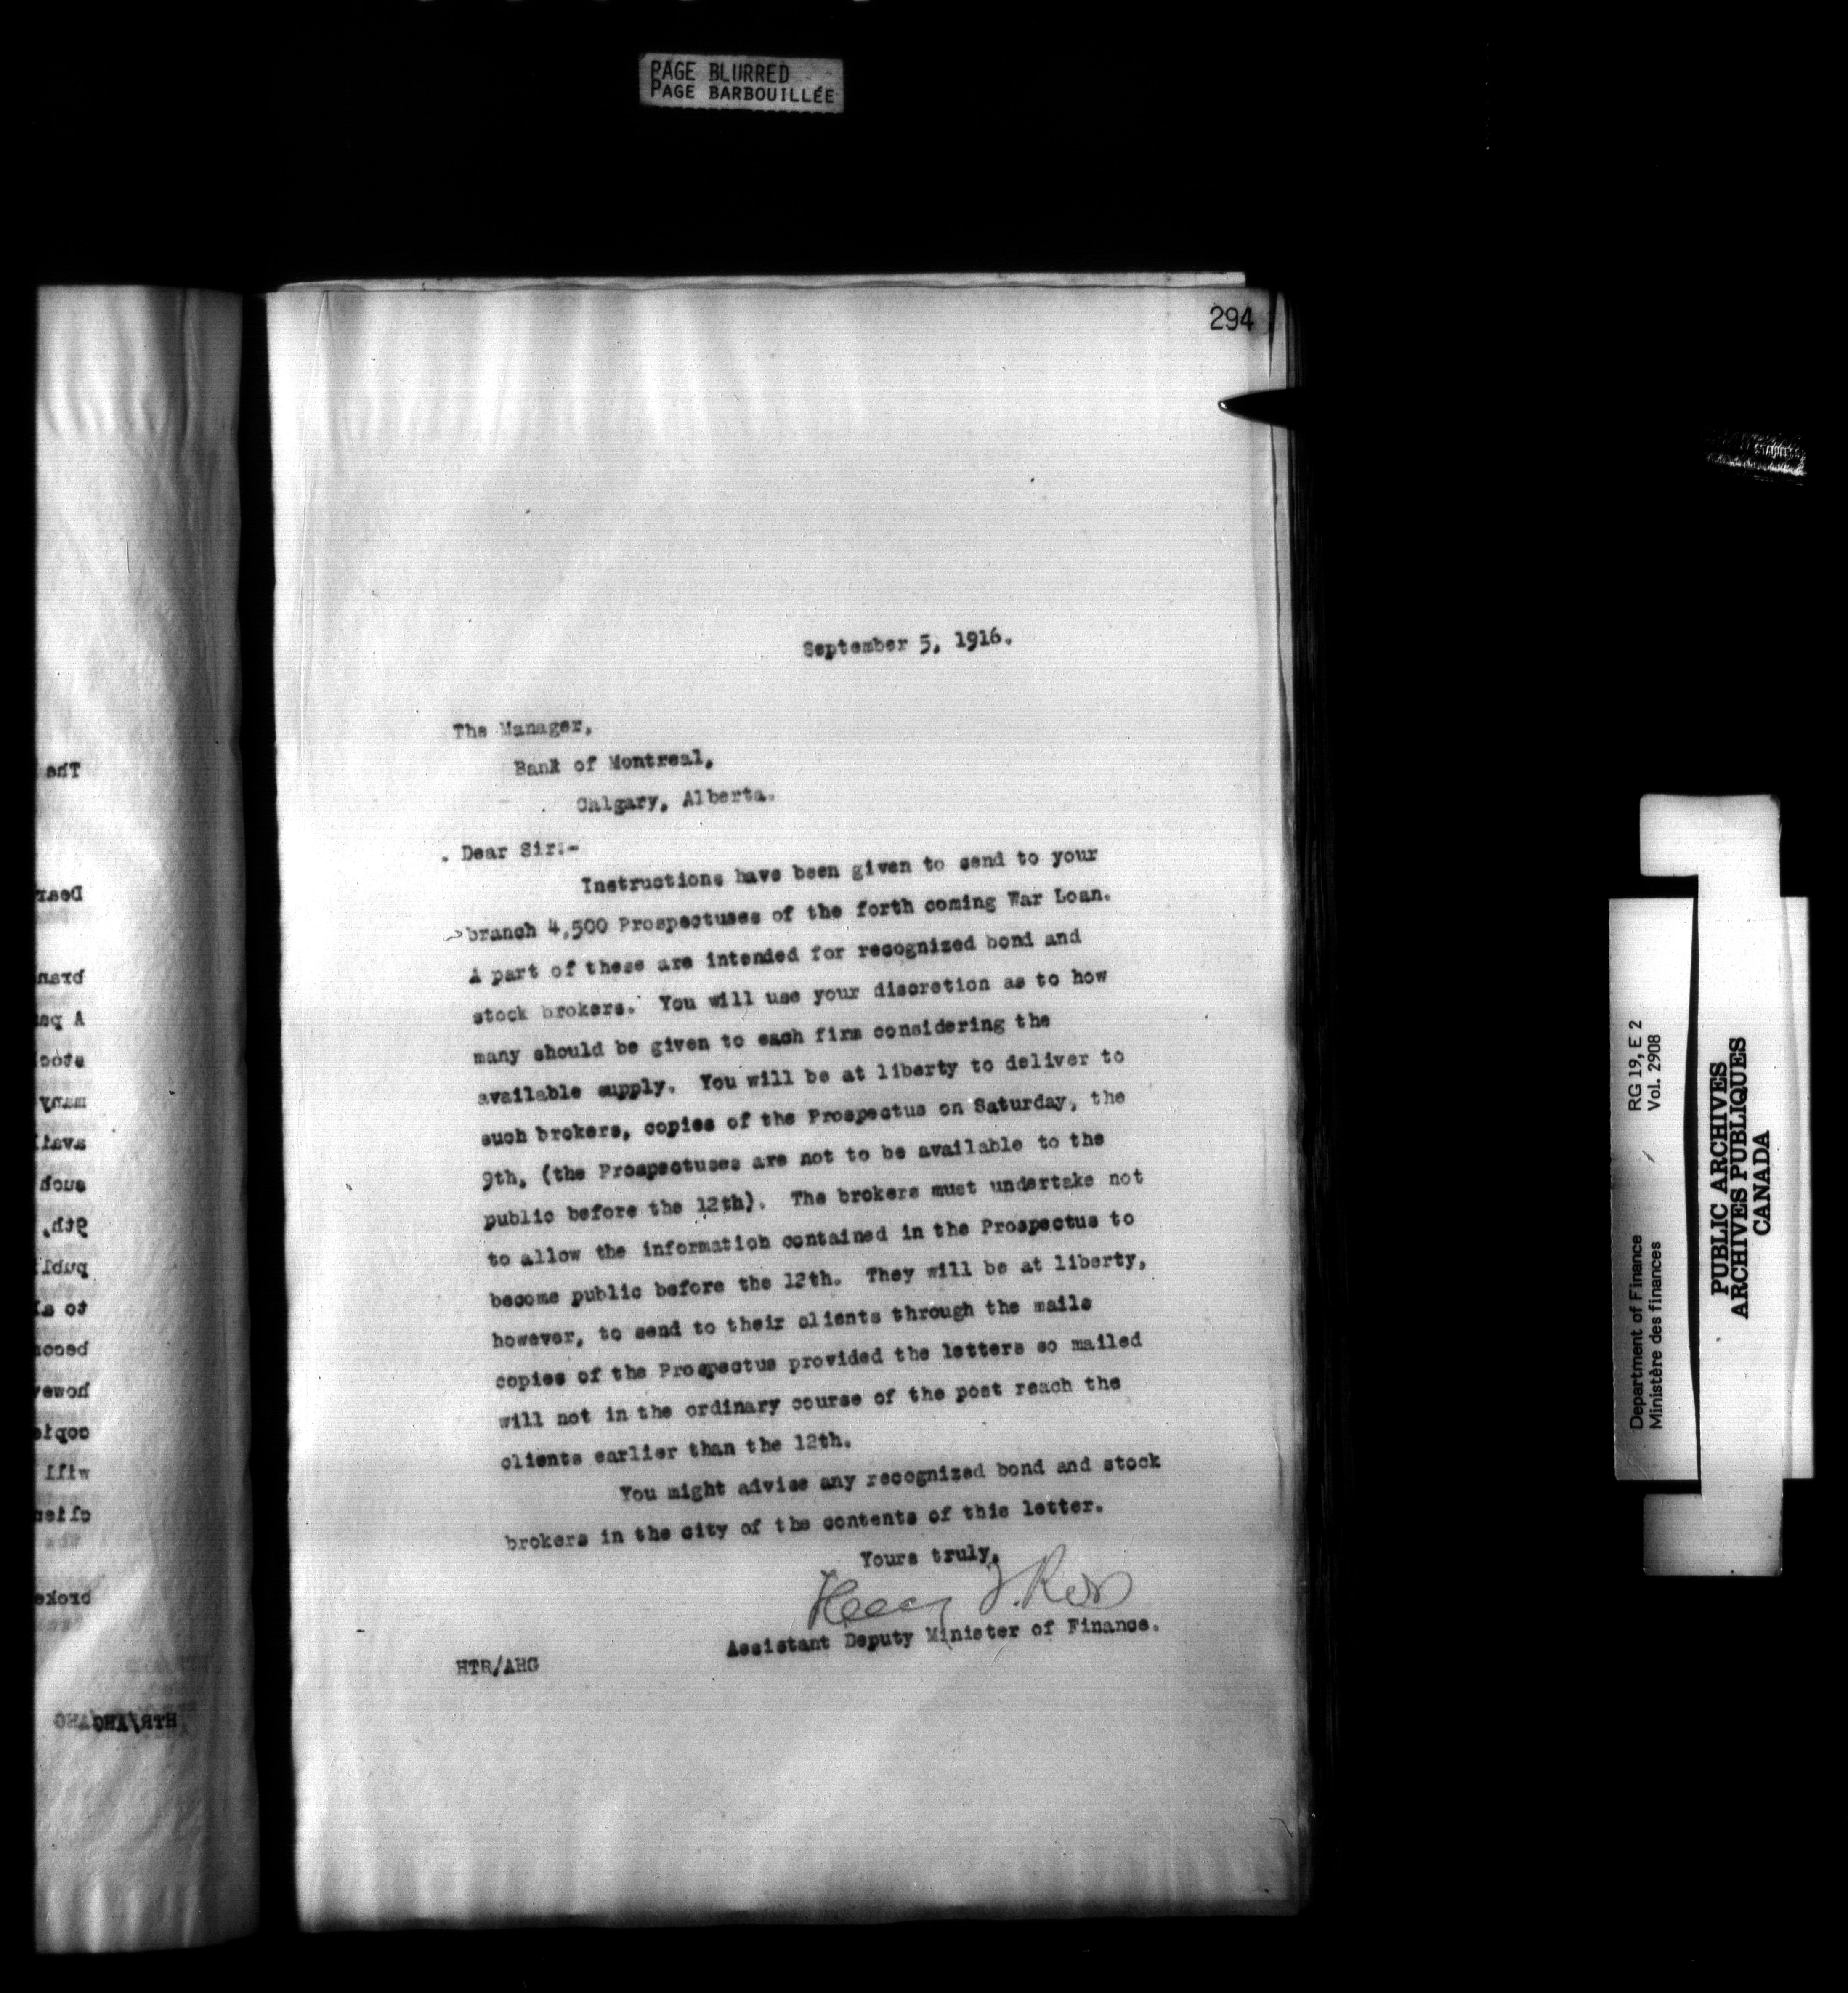 PAGE BLURRED
PAGE BARBOUILLÉE
294
September 5, 1916.
The Manager,
Bank of Montreal,
Calgary, Alberta.
Dear Sir:-
Instructions have been given to send to your
branch 4,500 Prospectuses of the forth coming War Loan.
A part of these are intended for recognized bond and
stock brokers. You will use your discretion as to how
many should be given to each firm considering the
available supply. You will be at liberty to deliver to
such brokers, copies of the Prospectus on Saturday, the
9th, (the Prospectuses are not to be available to the
public before the 12th). The brokers must undertake not
to allow the information contained in the Prospectus to
become public before the 12th. They will be at liberty,
however, to send to their clients through the mails
copies of the Prospectus provided the letters so mailed
will not in the ordinary course of the post reach the
clients earlier than the 12th.
You might advise any recognized bond and stock
brokers in the city of the contents of this letter.
Yours truly,
Assistant Deputy Minister of Finance.
HTR/AHG
Department of Finance RG 19, E 2
Ministère des finances Vol. 2908
PUBLIC ARCHIVES
ARCHIVES PUBLIQUES
CANADA